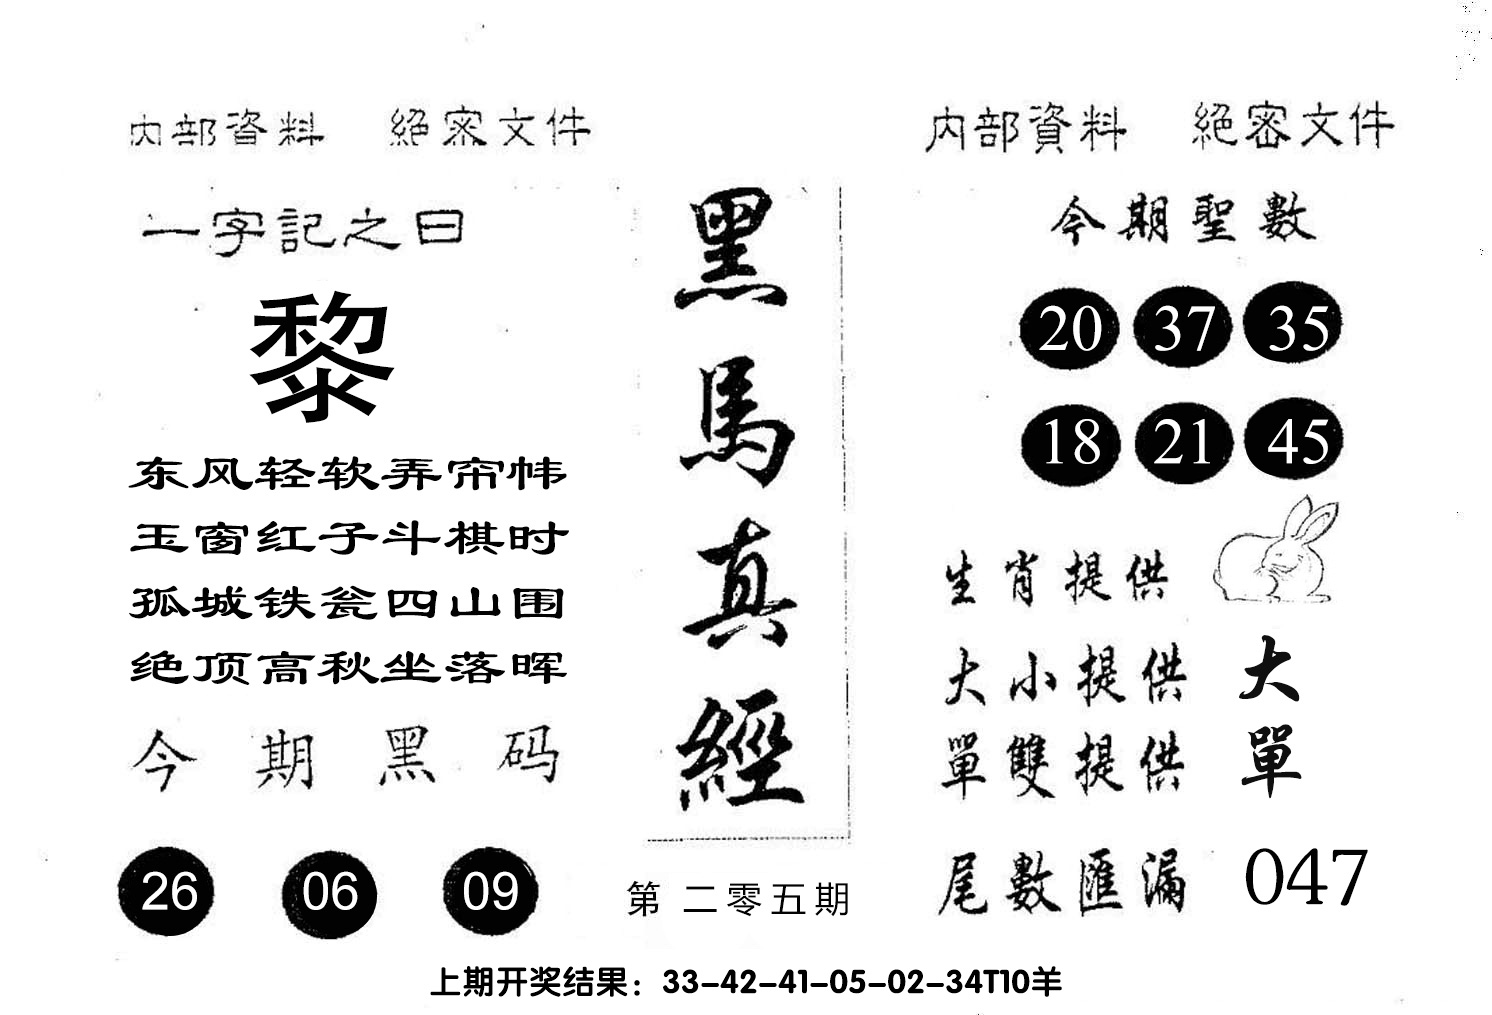 内部資料 絕密文件
一字記之曰
黎
东风轻软弄帘帏
玉窗红子斗棋时
孤城铁瓮四山围
绝顶高秋坐落晖
今期黑码
26 06 09
黑馬真經
第二零五期
内部資料 絕密文件
今期聖數
20 37 35
18 21 45
生肖提供
大小提供 大
單雙提供 單
尾數匯漏 047
上期开奖结果：33-42-41-05-02-34T10羊